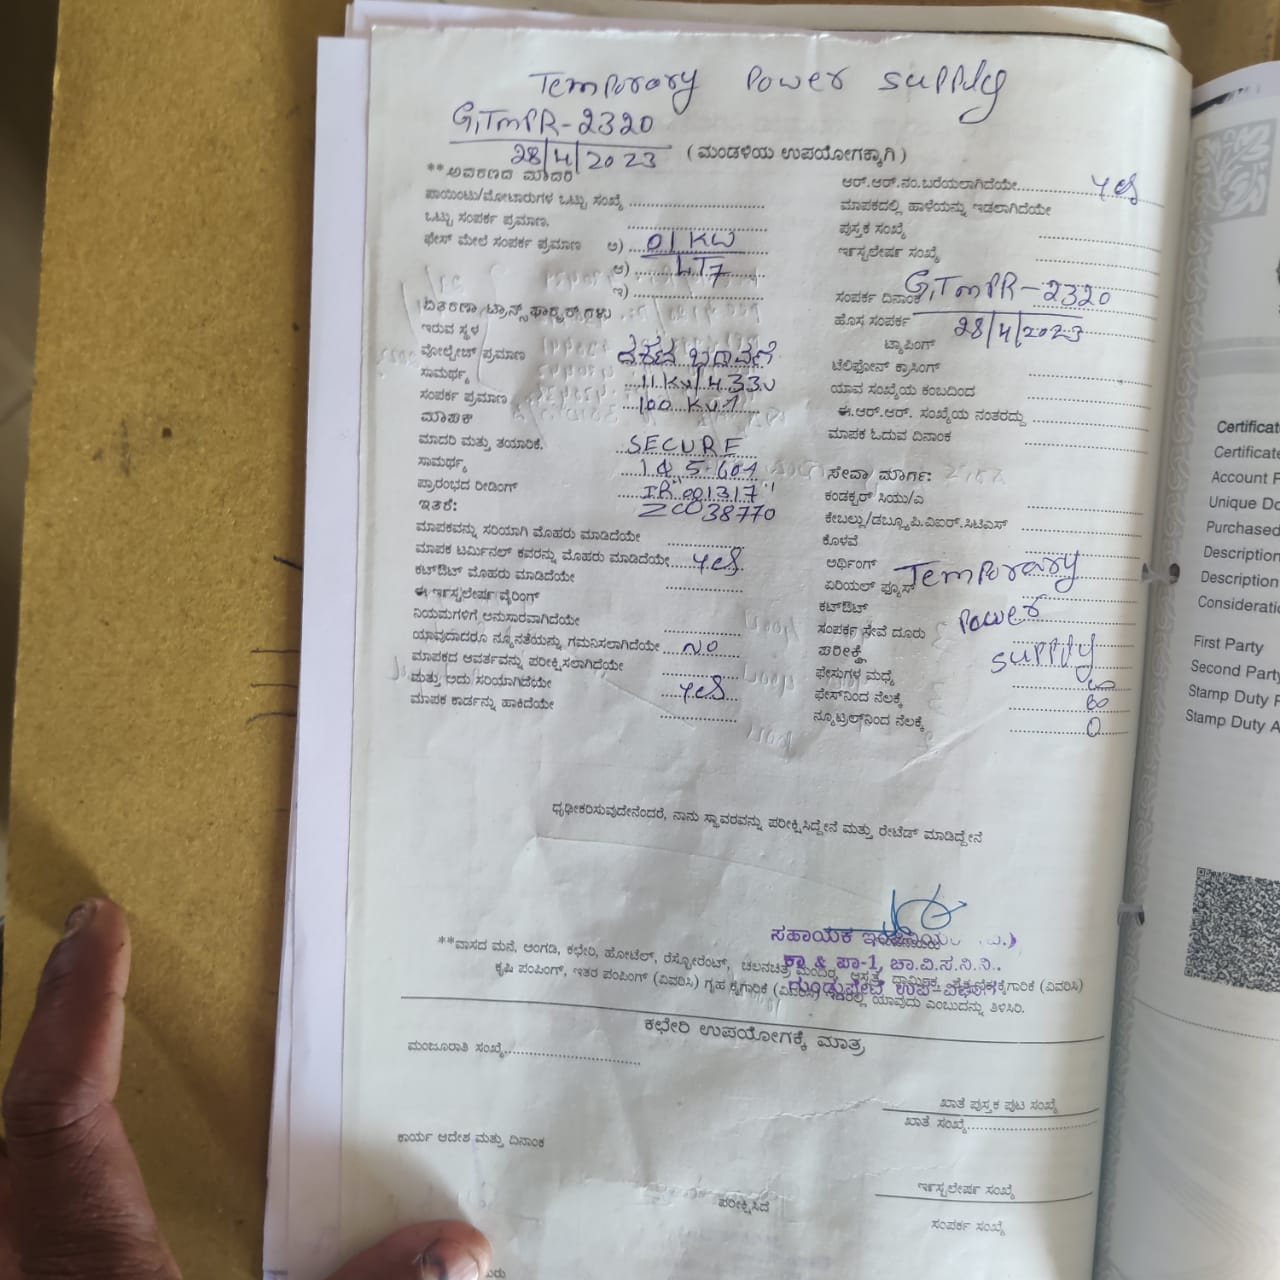 Temporary Power Supply
GTMPR-2320
28/4/2023 (ಮಂಡಳಿಯ ಉಪಯೋಗಕ್ಕಾಗಿ)
**ಆವರಣದ ಮಾದರಿ
ಪಾಯಿಂಟು/ಮೋಟಾರುಗಳ ಒಟ್ಟು ಸಂಖ್ಯೆ
ಒಟ್ಟು ಸಂಪರ್ಕ ಪ್ರಮಾಣ.
ಫೇಸ್ ಮೇಲೆ ಸಂಪರ್ಕ ಪ್ರಮಾಣ ಅ) 01 KW
ಆ) LT7
ಇ)
ವಿತರಣಾ ಟ್ರಾನ್ಸ್‌ಫಾರ್‍ಮರ್‌ಗಳು
ಇರುವ ಸ್ಥಳ
ವೋಲ್ಟೇಜ್ ಪ್ರಮಾಣ
ಸಾಮರ್ಥ್ಯ 11 KV/433V
ಸಂಪರ್ಕ ಪ್ರಮಾಣ 100 KVA
ಮಾಪಕ
ಮಾದರಿ ಮತ್ತು ತಯಾರಿಕೆ. SECURE
ಸಾಮರ್ಥ್ಯ
ಪ್ರಾರಂಭದ ರೀಡಿಂಗ್ IR "001317"
ಇತರೆ: ZC038770
ಮಾಪಕವನ್ನು ಸರಿಯಾಗಿ ಮೊಹರು ಮಾಡಿದೆಯೇ
ಮಾಪಕ ಟರ್ಮಿನಲ್ ಕವರನ್ನು ಮೊಹರು ಮಾಡಿದೆಯೇ yes
ಕಟ್‌ಔಟ್ ಮೊಹರು ಮಾಡಿದೆಯೇ
ಈ ಇನ್‌ಸ್ಟಲೇಷನ್ ವೈರಿಂಗ್
ನಿಯಮಗಳಿಗೆ ಅನುಸಾರವಾಗಿದೆಯೇ
ಯಾವುದಾದರೂ ನ್ಯೂನತೆಯನ್ನು ಗಮನಿಸಲಾಗಿದೆಯೇ No
ಮಾಪಕದ ಆವರ್ತವನ್ನು ಪರೀಕ್ಷಿಸಲಾಗಿದೆಯೇ
ಮತ್ತು ಅದು ಸರಿಯಾಗಿದೆಯೇ yes
ಮಾಪಕ ಕಾರ್ಡನ್ನು ಹಾಕಿದೆಯೇ
ಆರ್.ಆರ್.ನಂ.ಬರೆಯಲಾಗಿದೆಯೇ yes
ಮಾಪಕದಲ್ಲಿ ಹಾಳೆಯನ್ನು ಇಡಲಾಗಿದೆಯೇ
ಪುಸ್ತಕ ಸಂಖ್ಯೆ
ಇನ್‌ಸ್ಟಲೇಷನ್ ಸಂಖ್ಯೆ
ಸಂಪರ್ಕ ದಿನಾಂಕ GTMPR-2320
ಹೊಸ ಸಂಪರ್ಕ 28/4/2023
ಟ್ಯಾಪಿಂಗ್
ಟೆಲಿಫೋನ್ ಕ್ರಾಸಿಂಗ್
ಯಾವ ಸಂಖ್ಯೆಯ ಕಂಬದಿಂದ
ಈ.ಆರ್.ಆರ್. ಸಂಖ್ಯೆಯ ನಂತರದ್ದು
ಮಾಪಕ ಓದುವ ದಿನಾಂಕ
ಸೇವಾ ಮಾರ್ಗ:
ಕಂಡಕ್ಟರ್ ಸಿಯು/ಎ
ಕೇಬಲ್ಲು/ಡಬ್ಲ್ಯೂಪಿ.ವಿಐಆರ್.ಸಿಟಿಎಸ್
ಕೊಳವೆ
ಅರ್ಥಿಂಗ್ Temporary
ಏರಿಯಲ್ ಫ್ಯೂಸ್
ಕಟ್‌ಔಟ್ Power
ಸಂಪರ್ಕ ಸೇವೆ ದೂರು
ಪರೀಕ್ಷೆ Supply
ಫೇಸುಗಳ ಮಧ್ಯೆ
ಫೇಸ್‌ನಿಂದ ನೆಲಕ್ಕೆ
ನ್ಯೂಟ್ರಲ್‌ನಿಂದ ನೆಲಕ್ಕೆ 0
ಧೃಢೀಕರಿಸುವುದೇನೆಂದರೆ, ನಾನು ಸ್ಥಾವರವನ್ನು ಪರೀಕ್ಷಿಸಿದ್ದೇನೆ ಮತ್ತು ರೇಟೆಡ್ ಮಾಡಿದ್ದೇನೆ
ಸಹಾಯಕ
ಕಾ & ಪಾ-1, ಚಾ.ವಿ.ಸ.ನಿ.ನಿ.,
**ವಾಸದ ಮನೆ, ಅಂಗಡಿ, ಕಛೇರಿ, ಹೋಟೆಲ್, ರೆಸ್ಟೋರೆಂಟ್, ಚಲನಚಿತ್ರ ಮಂದಿರ,
ಕೃಷಿ ಪಂಪಿಂಗ್, ಇತರ ಪಂಪಿಂಗ್ (ವಿವರಿಸಿ) ಗೃಹ ಕೈಗಾರಿಕೆ (ವಿವರಿಸಿ) ಇದರಲ್ಲಿ ಯಾವುದು ಎಂಬುದನ್ನು ತಿಳಿಸಿರಿ.
ಕಛೇರಿ ಉಪಯೋಗಕ್ಕೆ ಮಾತ್ರ
ಮಂಜೂರಾತಿ ಸಂಖ್ಯೆ
ಖಾತೆ ಪುಸ್ತಕ ಪುಟ ಸಂಖ್ಯೆ
ಖಾತೆ ಸಂಖ್ಯೆ
ಕಾರ್ಯ ಆದೇಶ ಮತ್ತು ದಿನಾಂಕ
ಇನ್‌ಸ್ಟಲೇಷನ್ ಸಂಖ್ಯೆ
ಪರೀಕ್ಷಿಸಿದೆ
ಸಂಪರ್ಕ ಸಂಖ್ಯೆ
Certificate
Certificate
Account
Unique
Purchased
Description
Description
First Party
Second Party
Stamp Duty
Stamp Duty